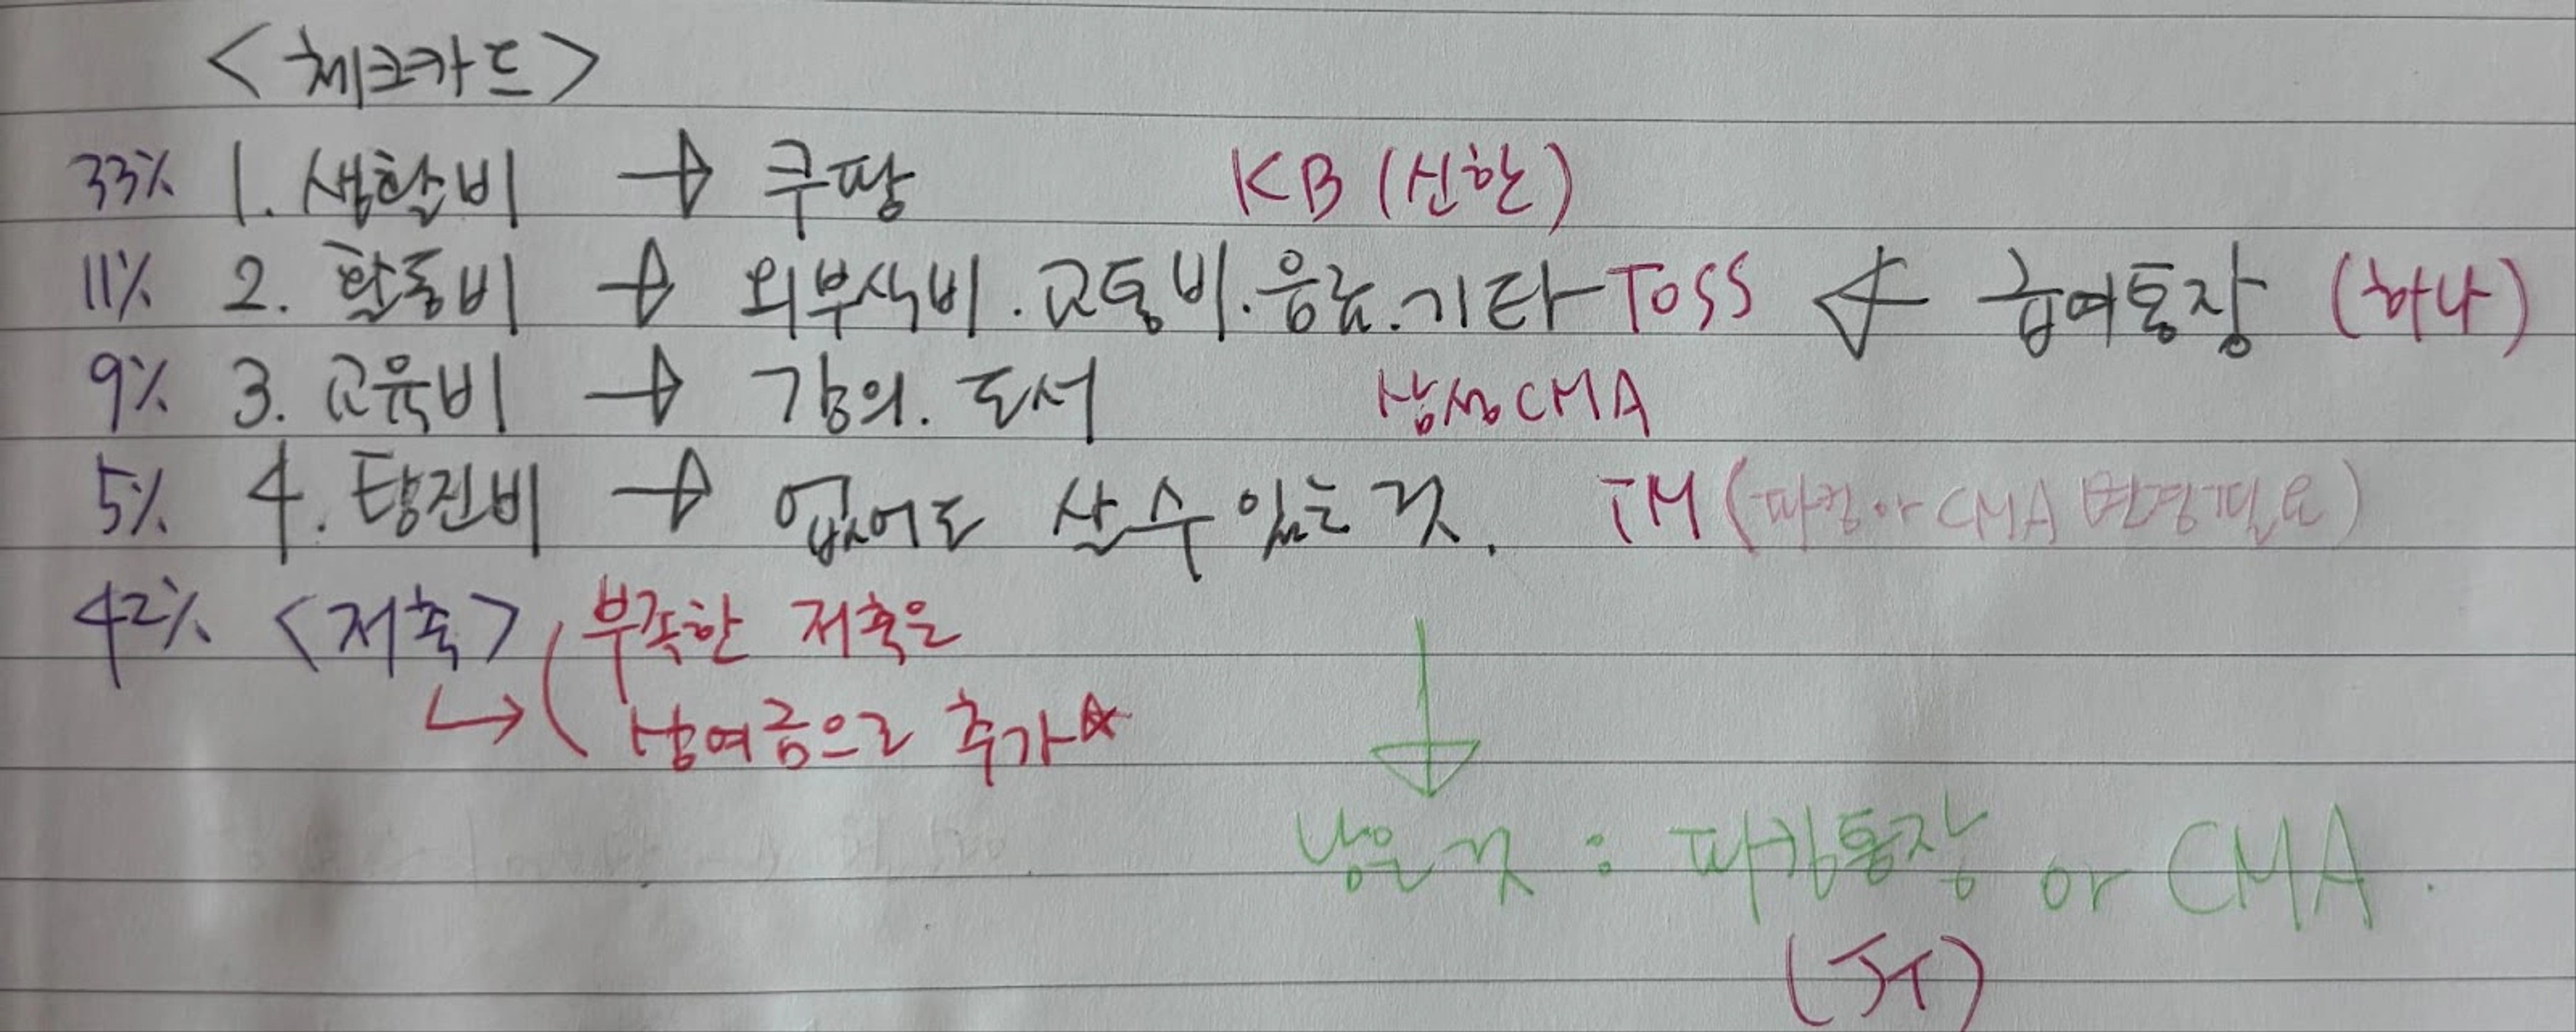 <체크카드>
33% 1. 생활비 → 쿠팡 KB (신한)
11% 2. 활동비 → 외부식비. 교통비. 음료. 기타 TOSS ← 급여통장 (하나)
9% 3. 교육비 → 강의. 도서 삼성CMA
5% 4. 탕진비 → 없어도 살 수 있는 것. IM (파킹 or CMA 변경필요)
42% <저축> (부족한 저축은
↳ 상여금으로 추가☆
↓
남은 것 : 파킹통장 or CMA.
(JT)